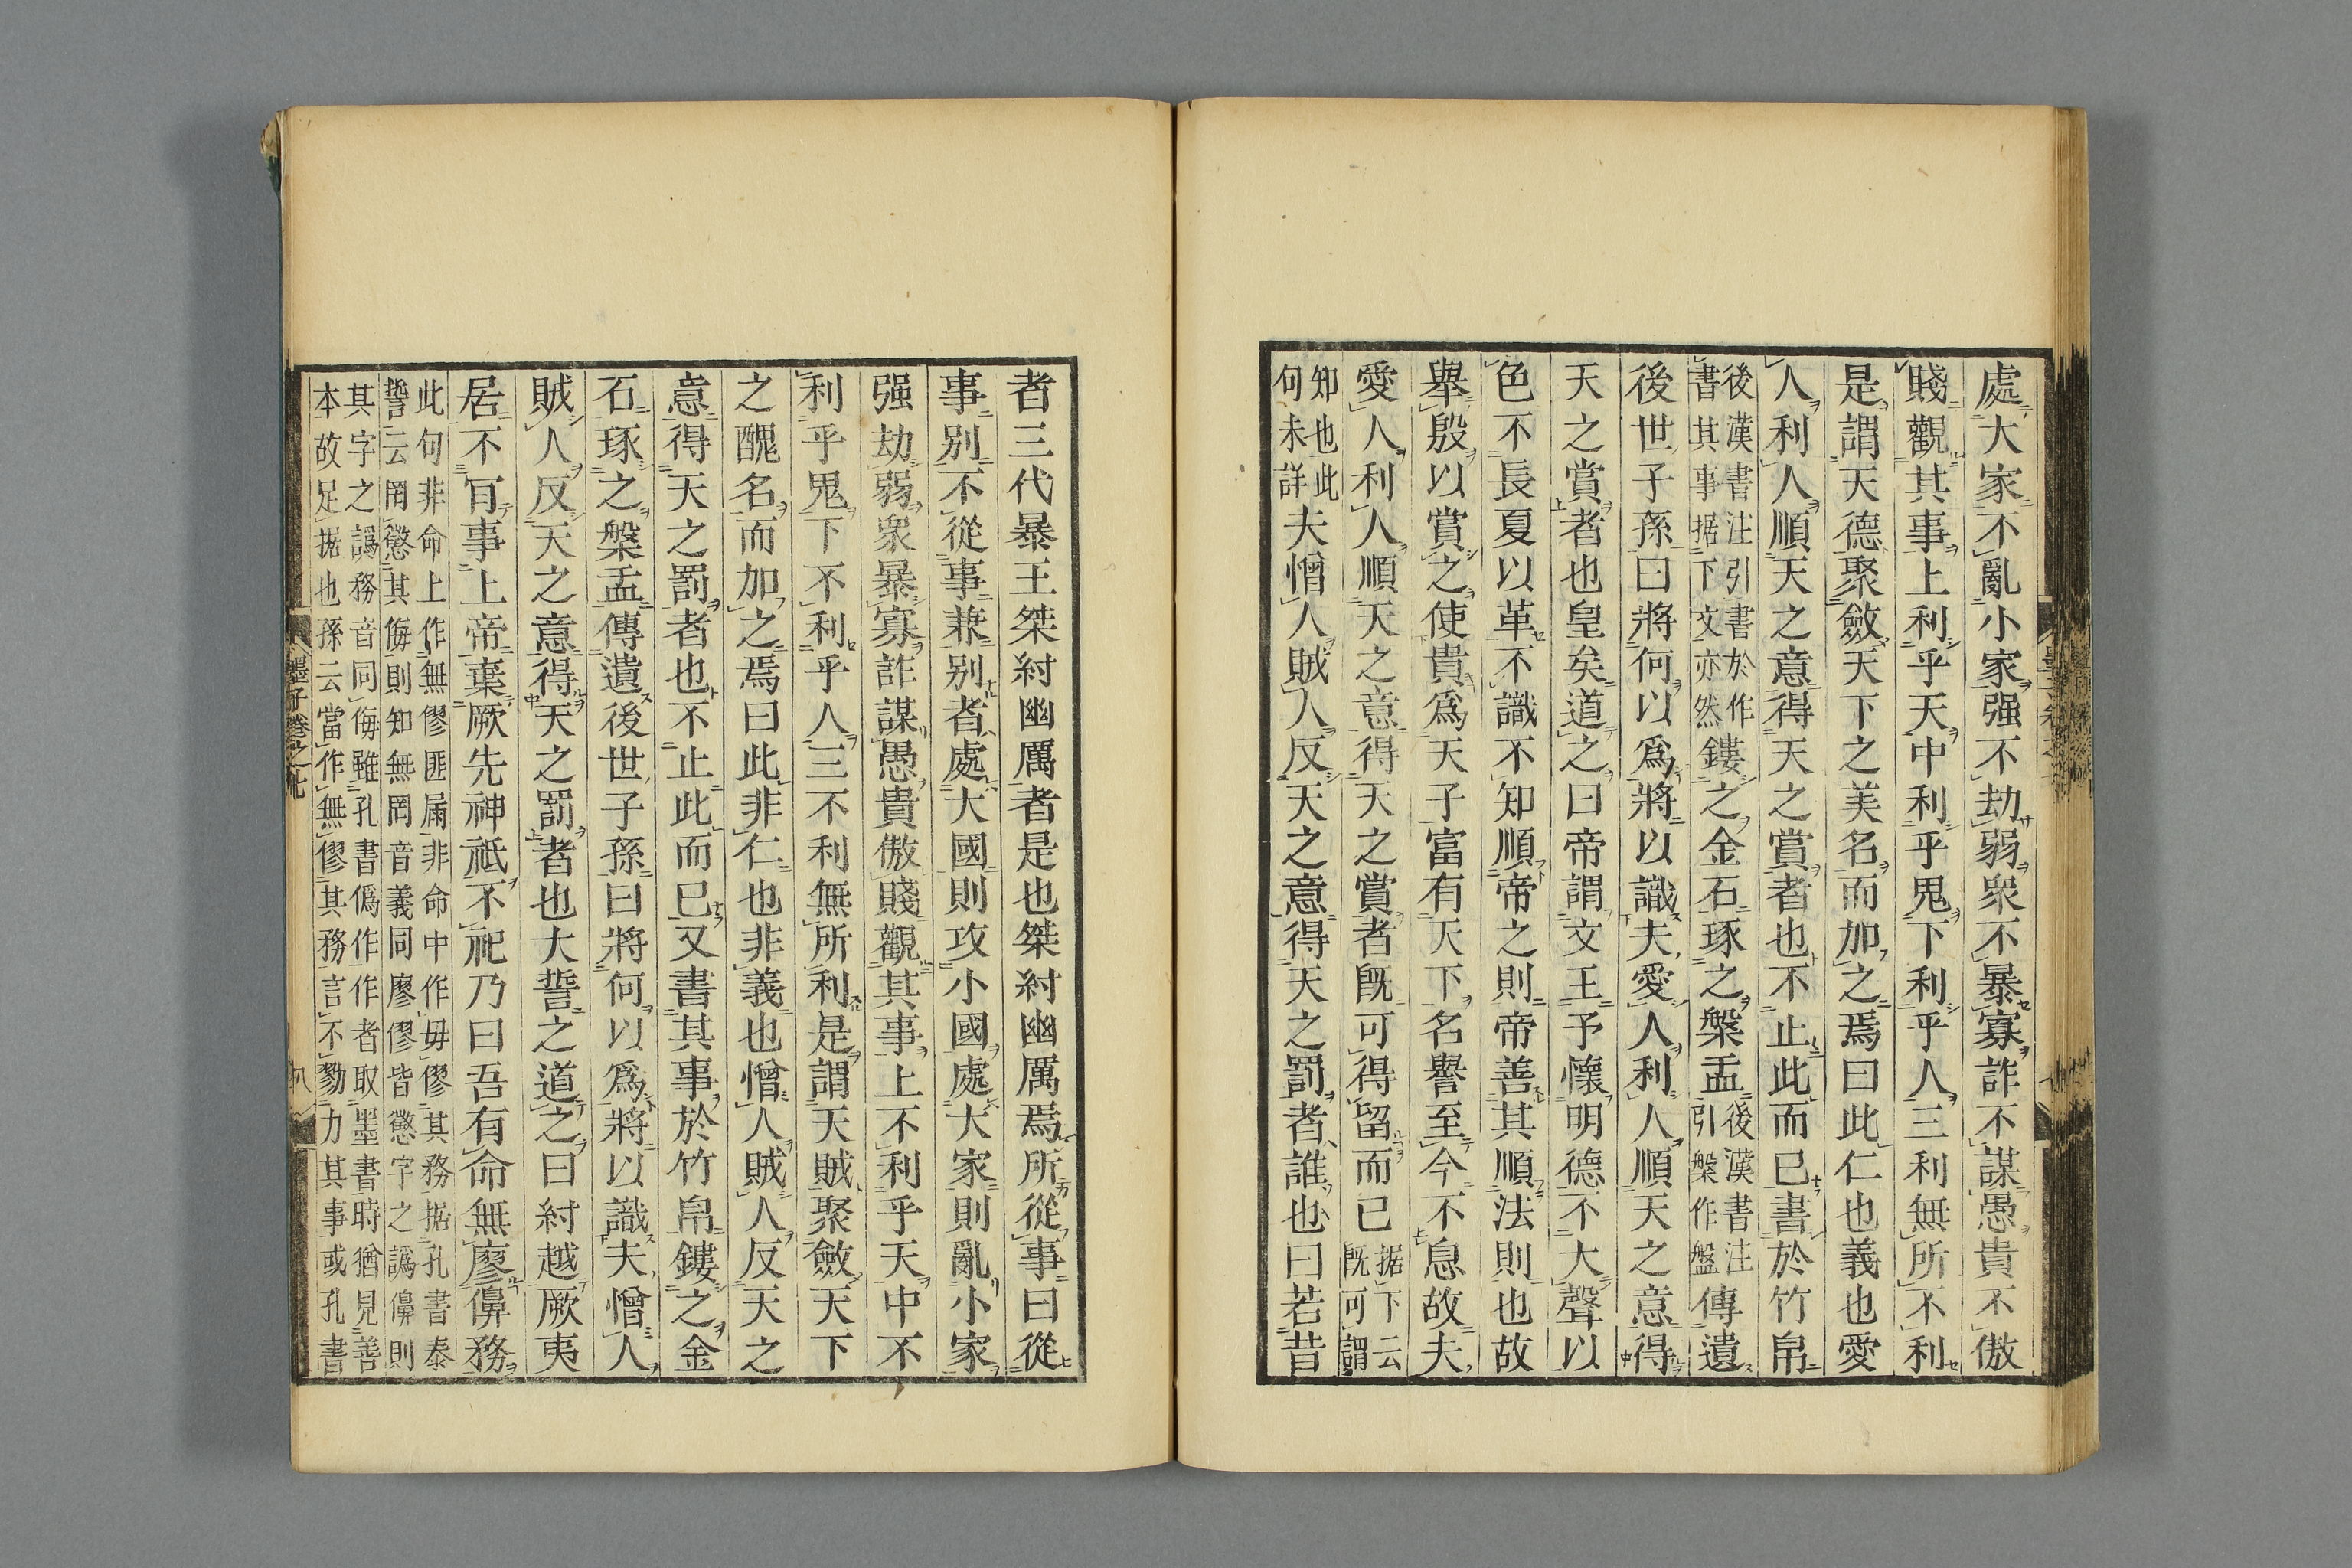 處大家不亂小家强不劫弱衆不暴寡詐不謀愚貴不傲
賤觀其事上利乎天中利乎鬼下利乎人三利無所不利
是謂天德聚斂天下之美名而加之焉曰此仁也義也愛
人利人順天之意得天之賞者也不止此而已書於竹帛
後漢書注引書於作
書其事据下文亦然
鏤之金石琢之槃盂
後漢書注
引槃作盤
傳遺
後世子孫曰將何以爲將以識夫愛人利人順天之意得
天之賞者也皇矣道之曰帝謂文王予懷明德不大聲以
色不長夏以革不識不知順帝之則帝善其順法則也故
舉殷以賞之使貴爲天子富有天下名譽至今不息故夫
愛人利人順天之意得天之賞者旣可得留而已
据下云
旣可謂
知也此
句未詳
夫憎人賊人反天之意得天之罰者誰也曰若昔
者三代暴王桀紂幽厲者是也桀紂幽厲焉所從事曰從
事別不從事兼別者處大國則攻小國處大家則亂小家
强劫弱衆暴寡詐謀愚貴傲賤觀其事上不利乎天中不
利乎鬼下不利乎人三不利無所利是謂天賊聚斂天下
之醜名而加之焉曰此非仁也非義也憎人賊人反天之
意得天之罰者也不止此而已又書其事於竹帛鏤之金
石琢之槃盂傳遺後世子孫曰將何以爲將以識夫憎人
賊人反天之意得天之罰者也大誓之道之曰紂越厥夷
居不肎事上帝棄厥先神祇不祀乃曰吾有命無廖㒄務
此句非命上作無僇匪屚非命中作毋僇其務据孔書泰
誓云罔懲其侮則知無罔音義同廖僇皆懲字之譌㒄則
其字之譌務音同侮雖孔書僞作作者取墨書時猶見善
本故足据也孫云當作無僇其務言不勠力其事或孔書
墨子卷之七
八